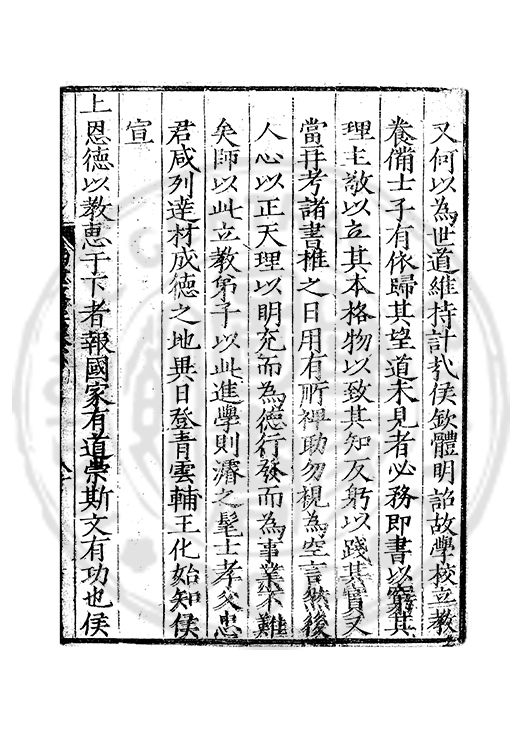 又何以為世道維持計㢤侯欽體明詔故學校立教
養備士子有依歸其望道未見者必務即書以窮其
理主敬以立其本格物以致其知反躬以踐其實又
當再考諸書推之日用有所裨助勿視為空言然後
人心以正天理以明充而為德行發而為事業不難
矣師以此立教弟子以此進學則濬之髦士孝父忠
君咸列達材成德之地異日登青雲輔王化始知侯
宣
上恩德以教惠于下者報國家有道崇斯文有功也侯